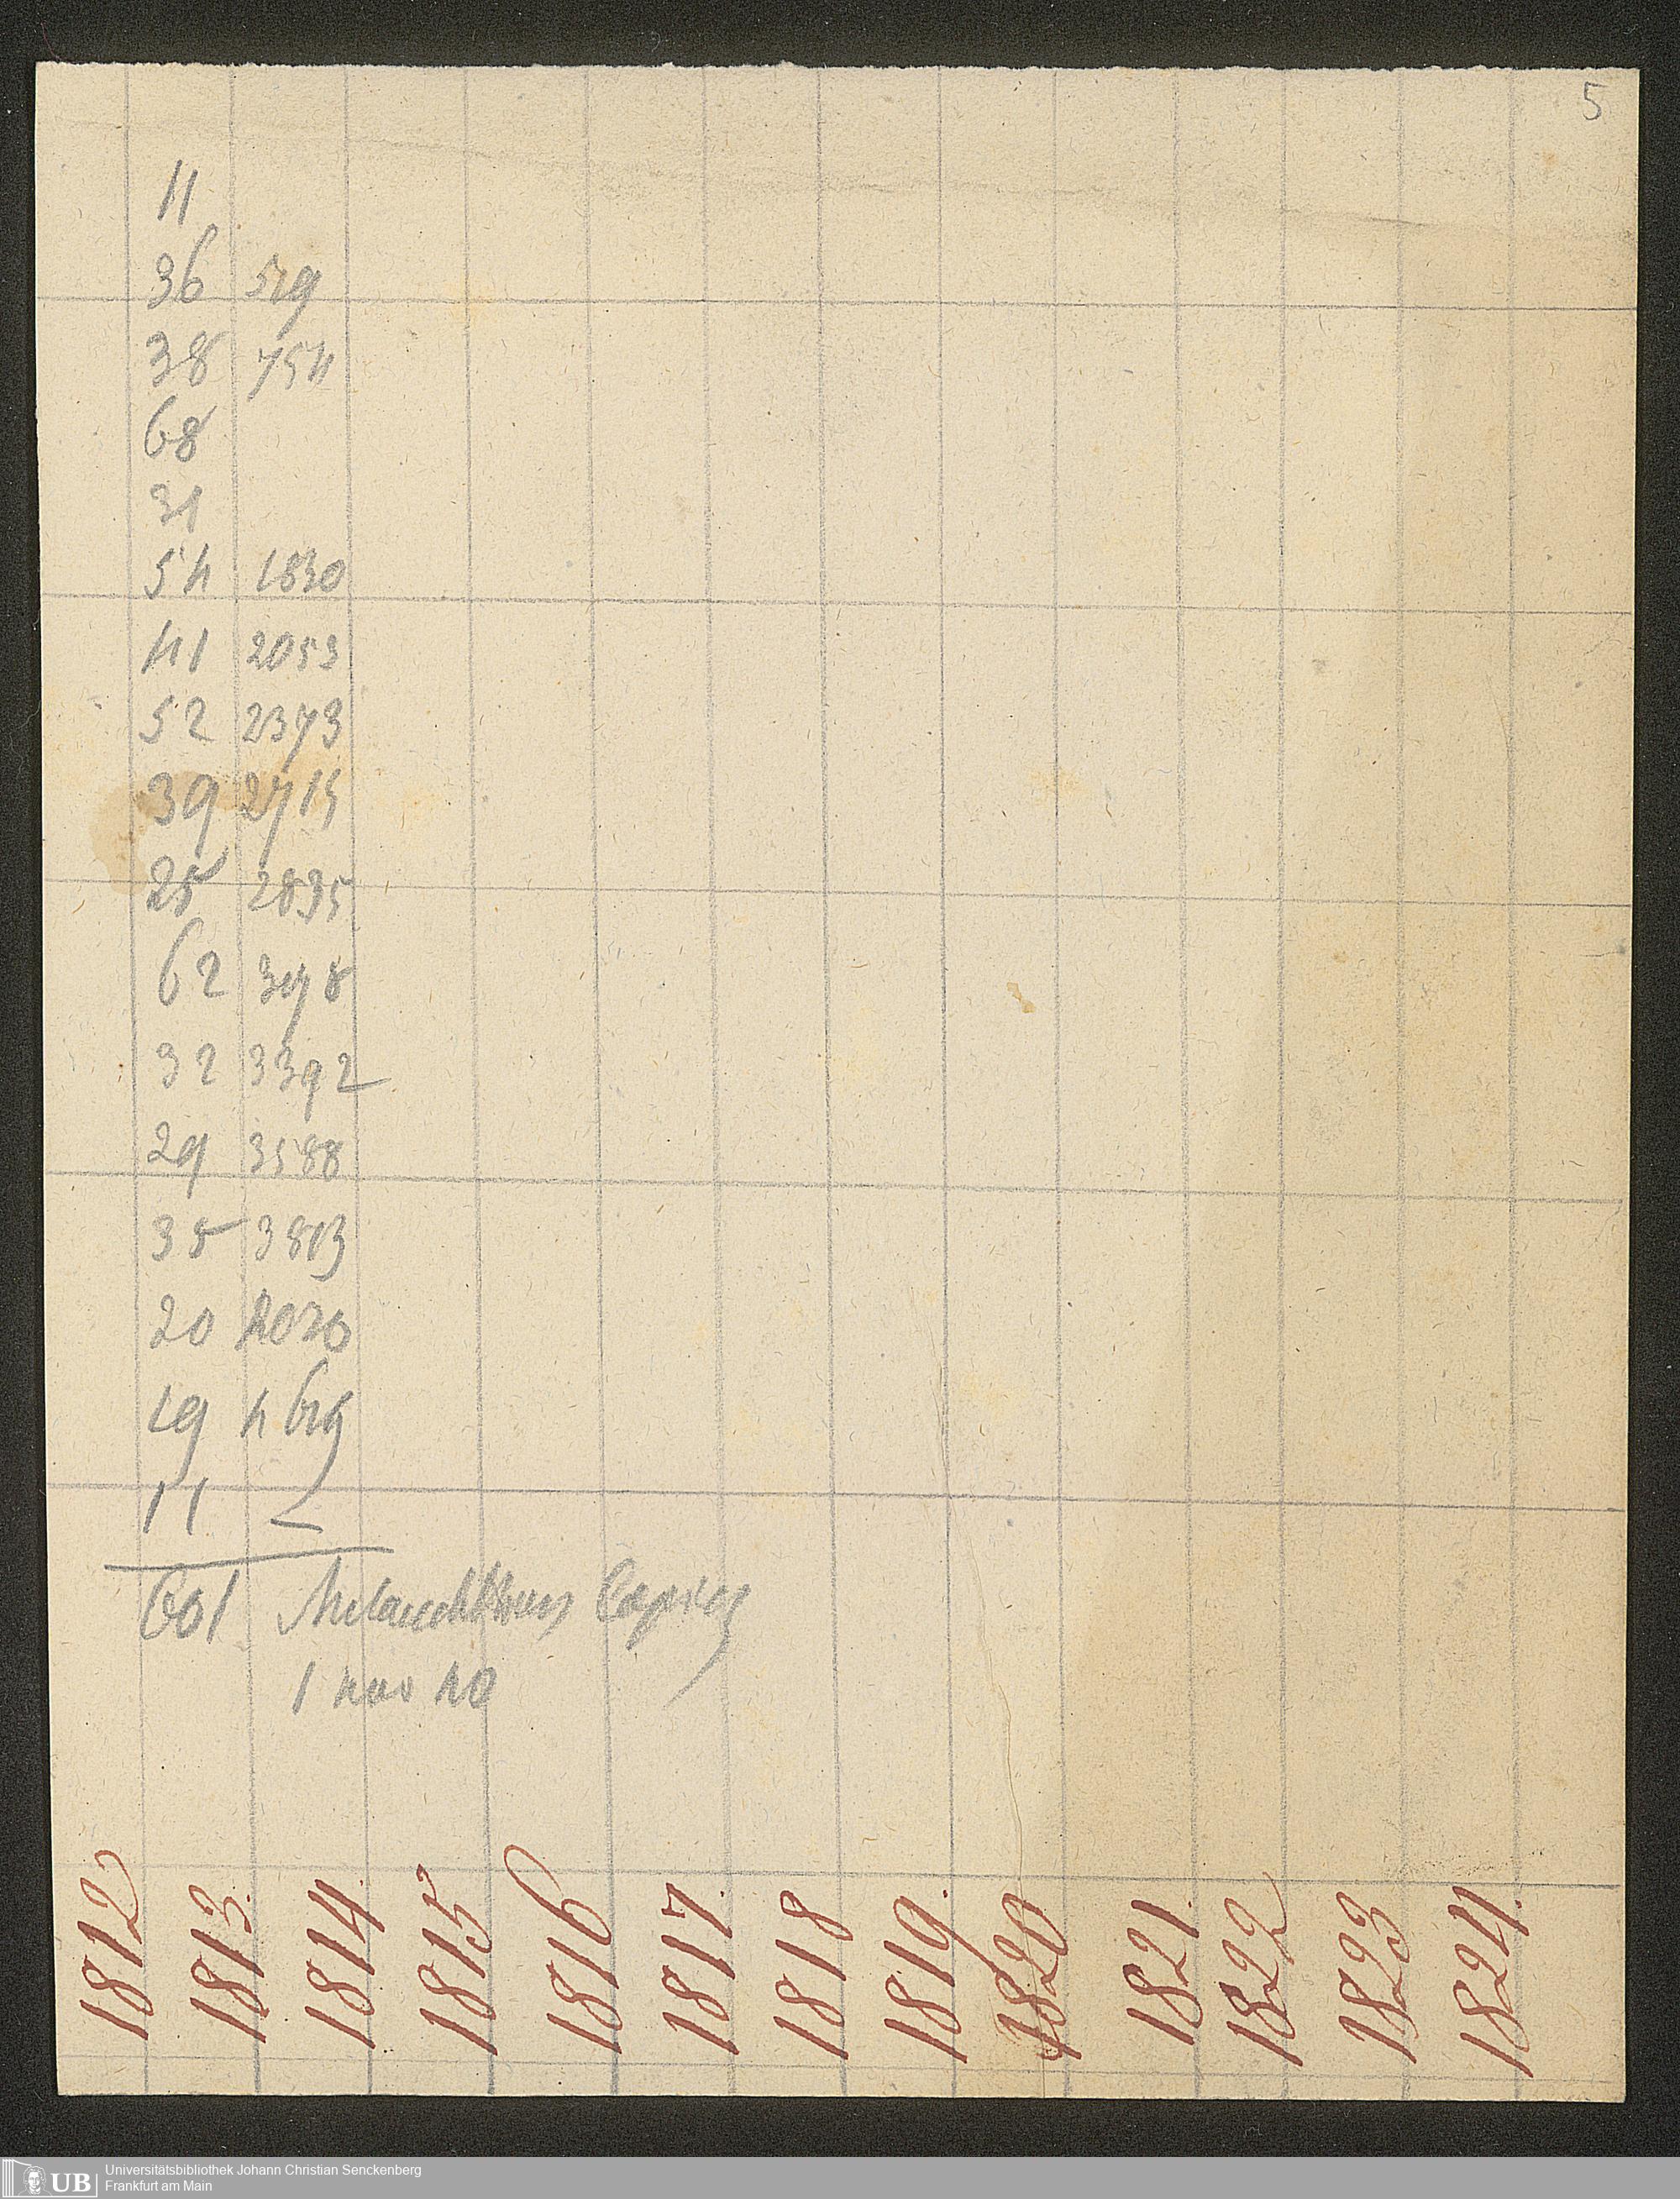 5
11
36 519
38 754
68
31
54 1830
41 2053
52 2373
39 2715
25 2835
62
32 3392
29 3588
35 3813
20 4020
19 4619
11
601 Melanchthons
1 nov 40
1812
1813.
1814.
1815
1816
1817.
1818
1819.
1820
1821.
1822
1823
1824.
UB Universitätsbibliothek Johann Christian Senckenberg
Frankfurt am Main